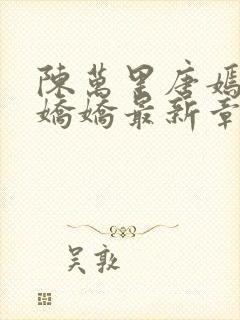 陳萬里唐嫣
嬌嬌最新章
吴敦